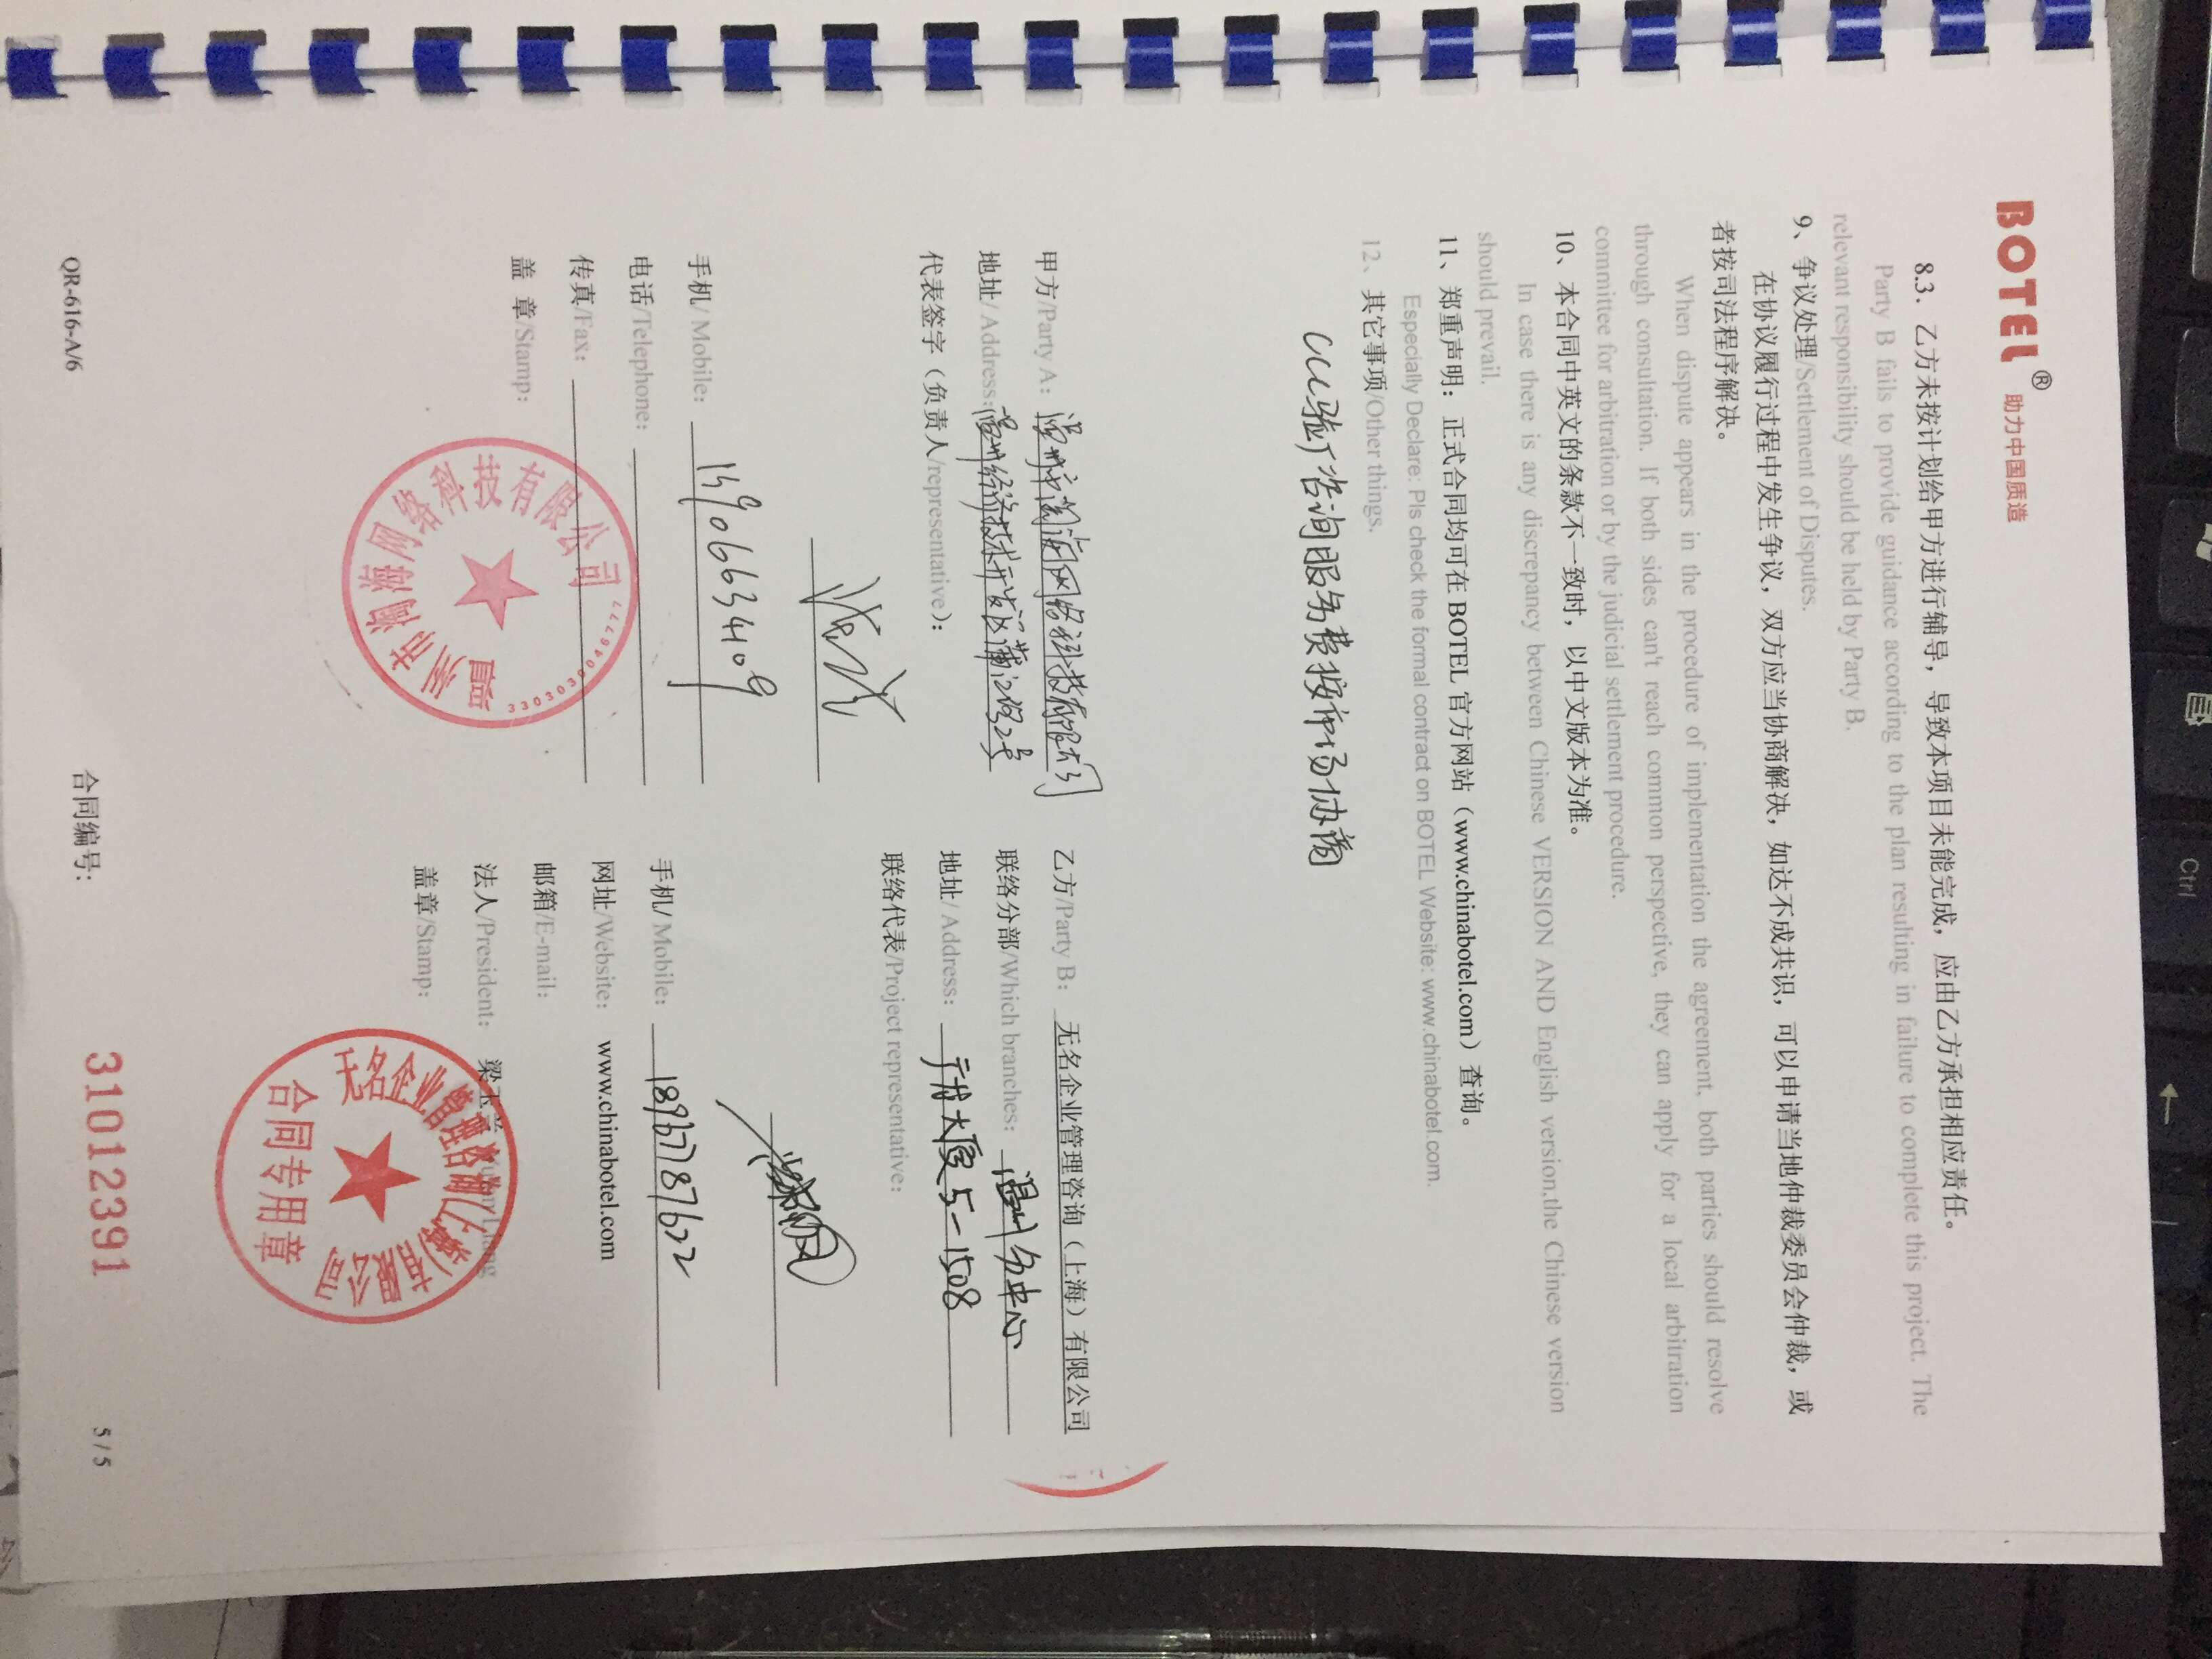 Ctrl
BOTEL® 助力中国质造
8.3. 乙方未按计划给甲方进行辅导，导致本项目未能完成，应由乙方承担相应责任。
Party B fails to provide guidance according to the plan resulting in failure to complete this project. The
relevant responsibility should be held by Party B.
9、争议处理/Settlement of Disputes.
在协议履行过程中发生争议，双方应当协商解决，如达不成共识，可以申请当地仲裁委员会仲裁，或
者按司法程序解决。
When dispute appears in the procedure of implementation the agreement, both parties should resolve
through consultation. If both sides can't reach common perspective, they can apply for a local arbitration
committee for arbitration or by the judicial settlement procedure.
10、本合同中英文的条款不一致时，以中文版本为准。
In case there is any discrepancy between Chinese VERSION AND English version,the Chinese version
should prevail.
11、郑重声明：正式合同均可在 BOTEL 官方网站（www.chinabotel.com）查询。
Especially Declare: Pls check the formal contract on BOTEL Website: www.chinabotel.com.
12、其它事项/Other things.
CCC验厂咨询服务费按市场协商
甲方/Party A: 温州市阅海网络科技有限公司
地址/ Address: 温州经济技术开发区蒲江路2号
代表签字（负责人/representative）:
手机/ Mobile: 15906634109
电话/Telephone:
传真/Fax:
盖 章/Stamp:
网络科技有限公司
温州市
乙方/Party B: 无名企业管理咨询（上海）有限公司
联络分部/Which branches: 温州分中心
地址/ Address: 大厦5-1508
联络代表/Project representative:
手机/ Mobile: 18967787622
网址/Website: www.chinabotel.com
邮箱/E-mail:
法人/President: 梁玉兰 Yulan Liang
盖章/Stamp:
无名企业管理咨询(上海)有限公司
合同专用章
QR-616-A/6
合同编号:
31012391
5 / 5